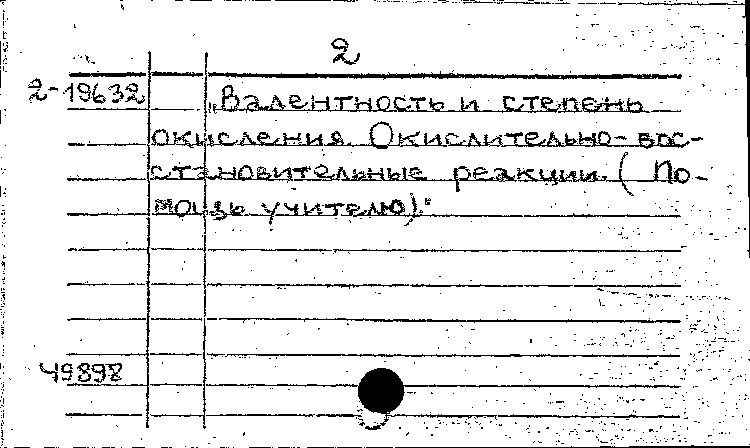 2
2-19632 „Валентность и степень
окисления. Окислительно-вос-
становительные реакции. (По-
мощь учителю)."
49898